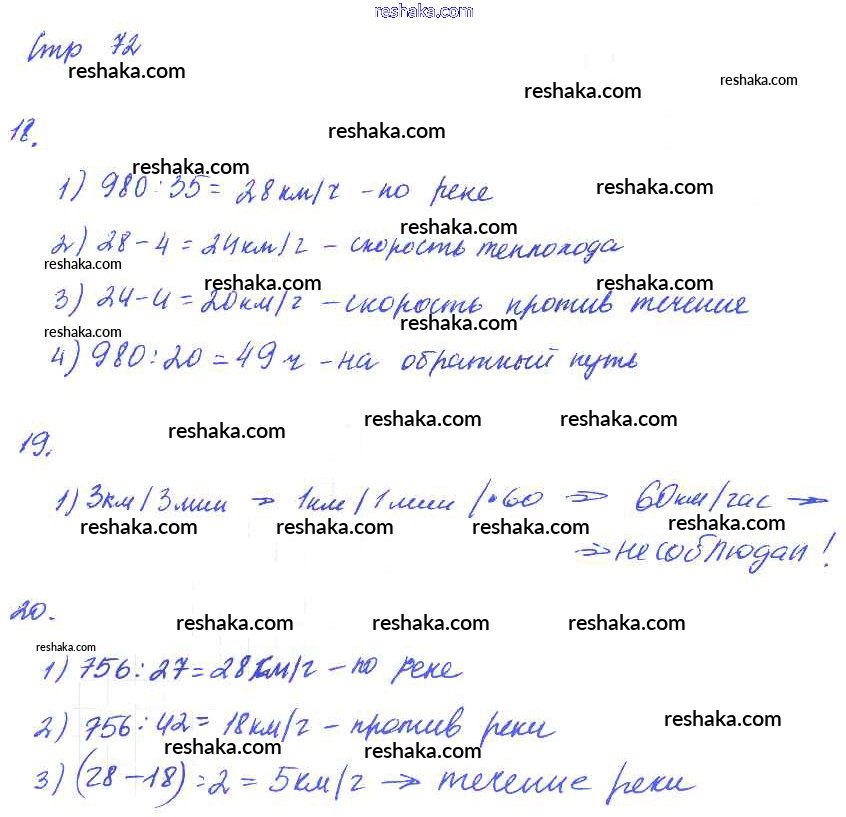 reshaka.com
Стр 72
reshaka.com reshaka.com reshaka.com
18. reshaka.com
reshaka.com reshaka.com
1) 980:35 = 28км/ч - по реке
reshaka.com
2) 28-4 = 24км/г - скорость теплохода
reshaka.com reshaka.com reshaka.com
3) 24-4 = 20км/г - скорость против течение
reshaka.com reshaka.com
4) 980:20 = 49 ч - на обратный путь
reshaka.com reshaka.com reshaka.com
19.
1) 3км/3мин → 1км/1мин /·60 ⇒ 60км/час →
reshaka.com reshaka.com reshaka.com reshaka.com
⇒ не соблюдал!
20. reshaka.com reshaka.com reshaka.com
reshaka.com
1) 756:27 = 28км/г - по реке
2) 756:42 = 18км/г - против реки
reshaka.com reshaka.com reshaka.com
3) (28-18):2 = 5км/г → течение реки